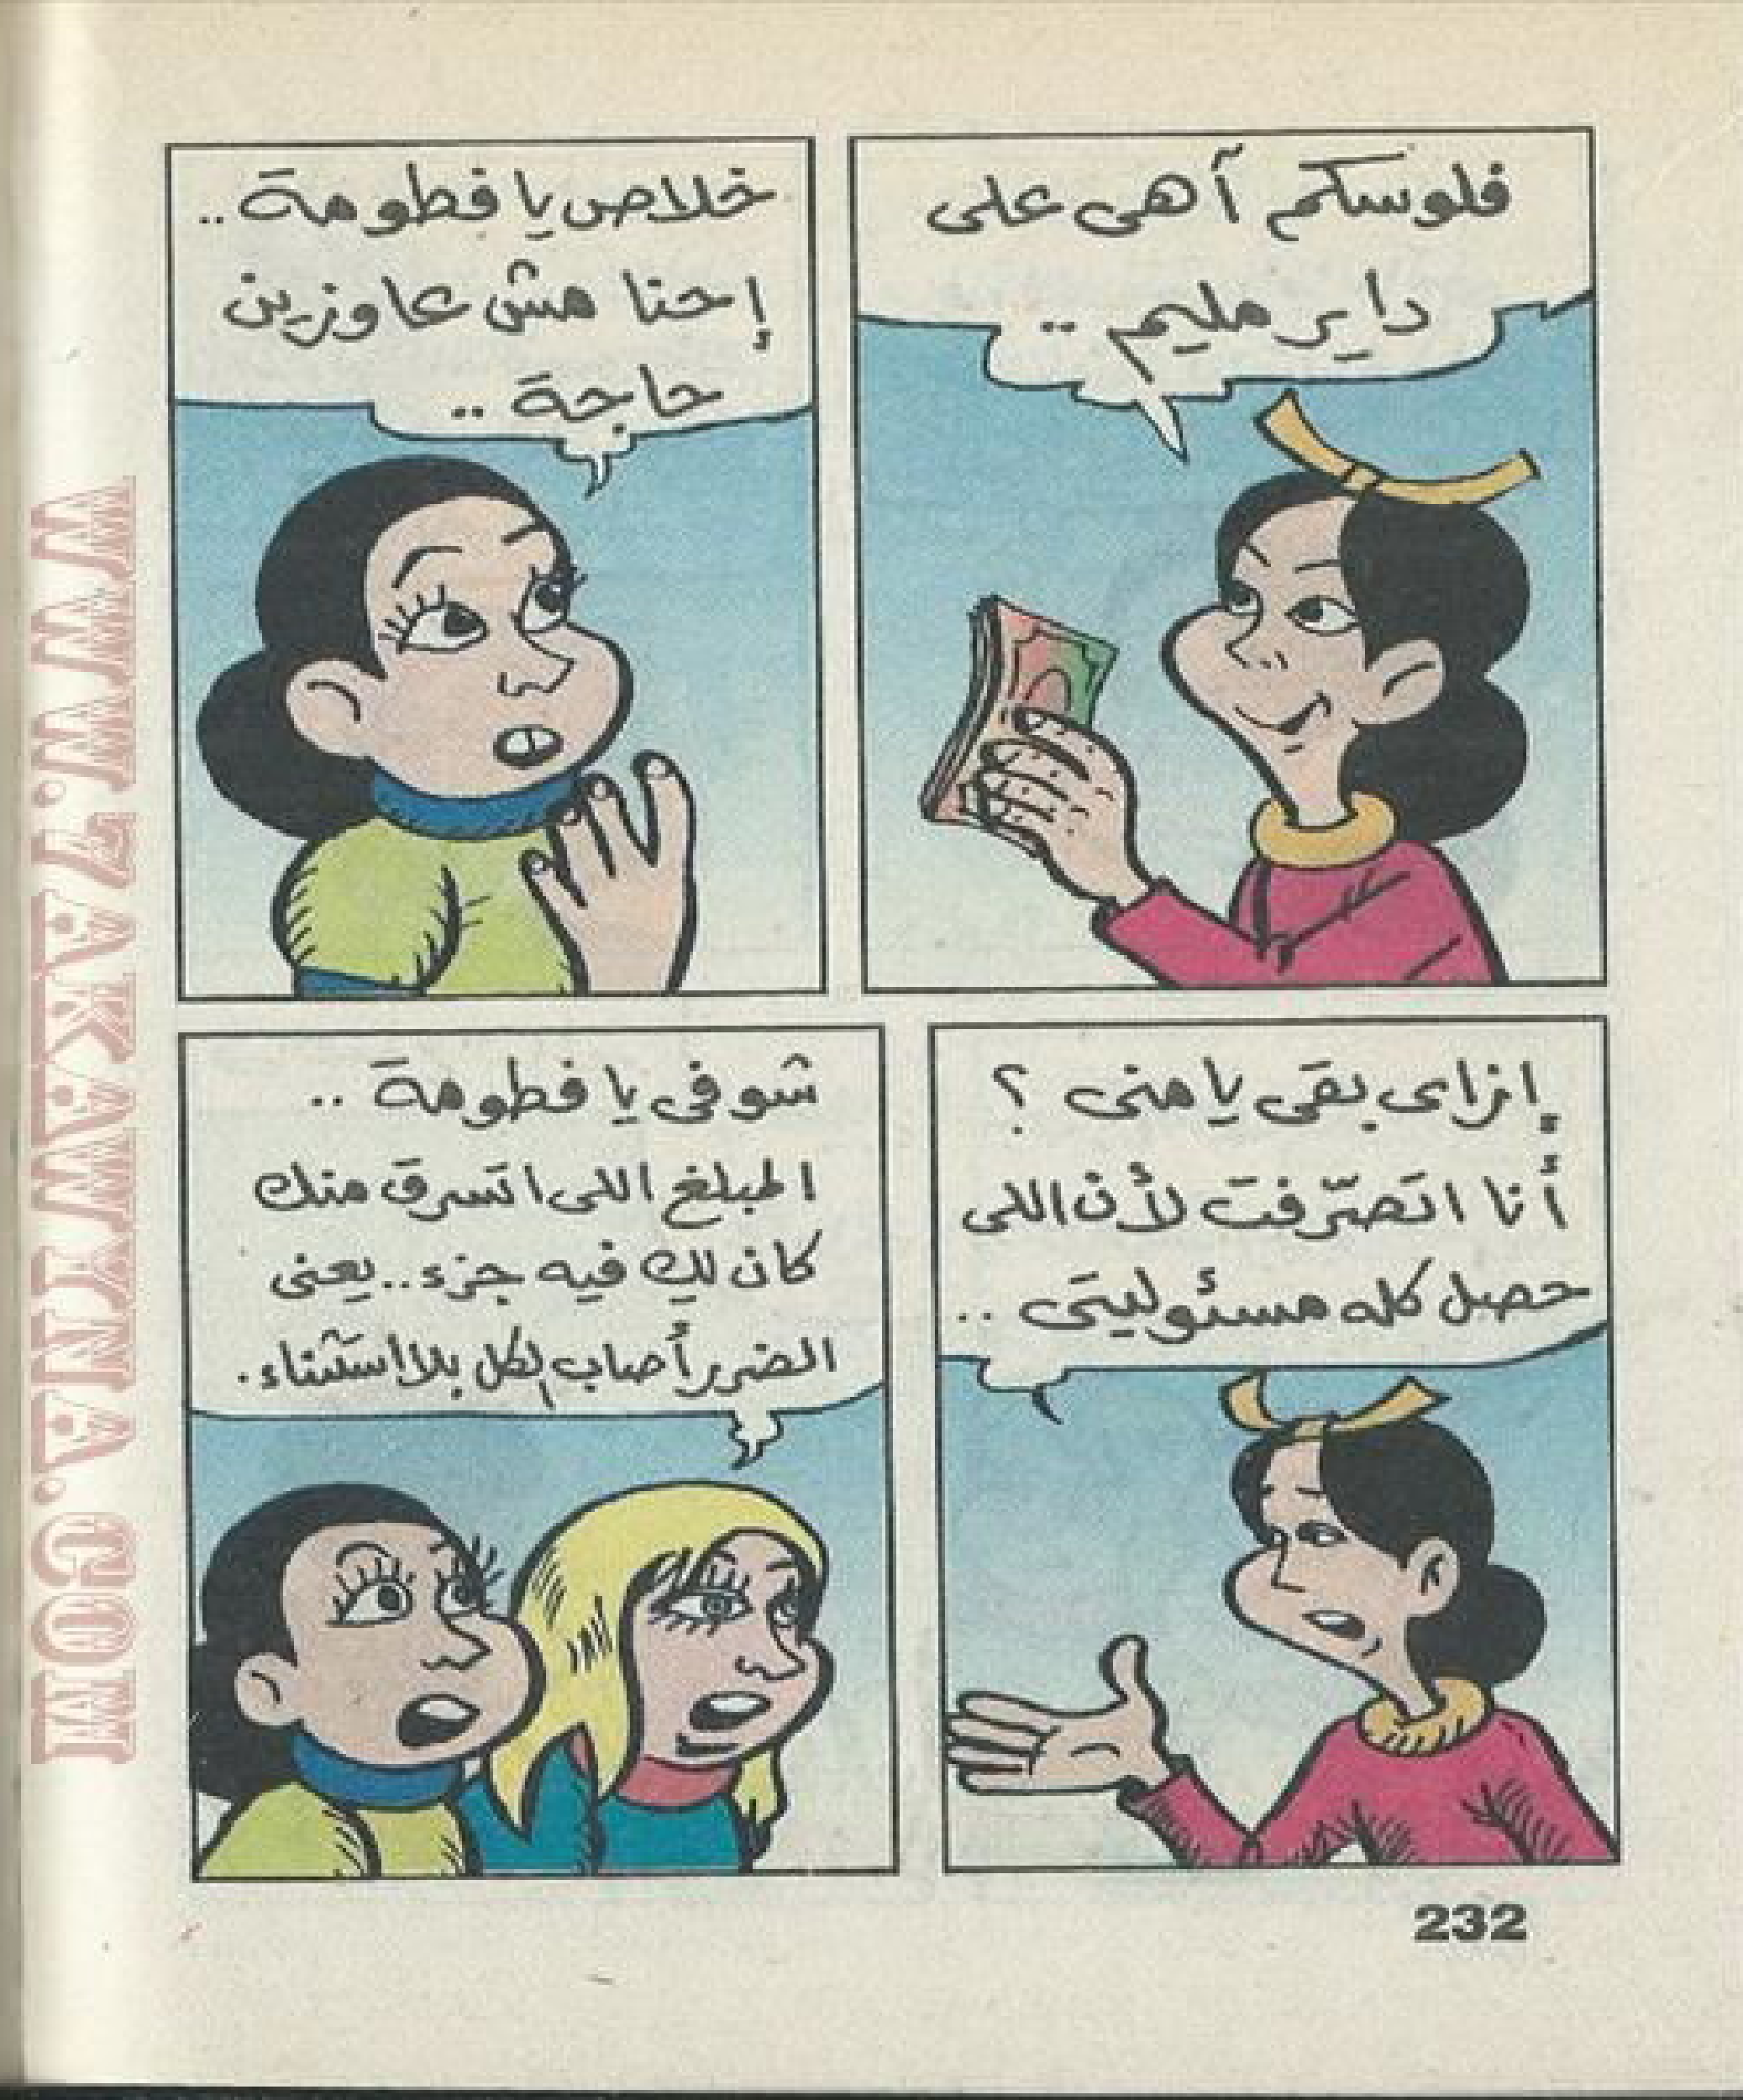 فلوسكم آهى على
داير مليم ..
خلاص يا فطومة ..
إحنا مش عاوزين
حاجة ..
إزاى بقى يا منى ؟
أنا اتصرّفت لأن اللى
حصل كله مسئوليتى ..
شوفى يا فطومة ..
المبلغ اللى اتسرق منك
كان لك فيه جزء .. يعنى
الضرر أصاب الكل بلا استثناء .
232
WWW.7AKAWTNA.COM